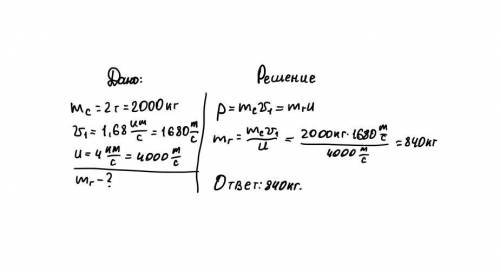 Дано:
m_c = 2 т = 2000 кг
v₁ = 1,68 км/с = 1680 м/с
u = 4 км/с = 4000 м/с
m_г - ?
Решение
p = m_c v₁ = m_г u
m_г = m_c v₁ / u = 2000 кг · 1680 м/с / 4000 м/с = 840 кг
Ответ: 840 кг.